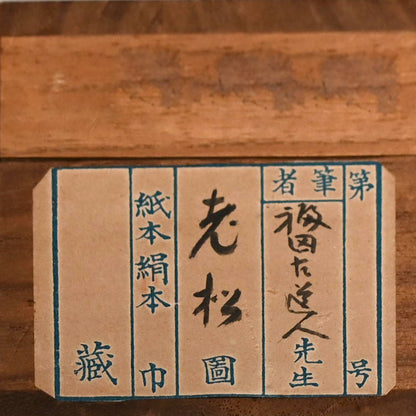 第 号
筆者 福田古道人先生
老松圖
紙本絹本 巾
藏